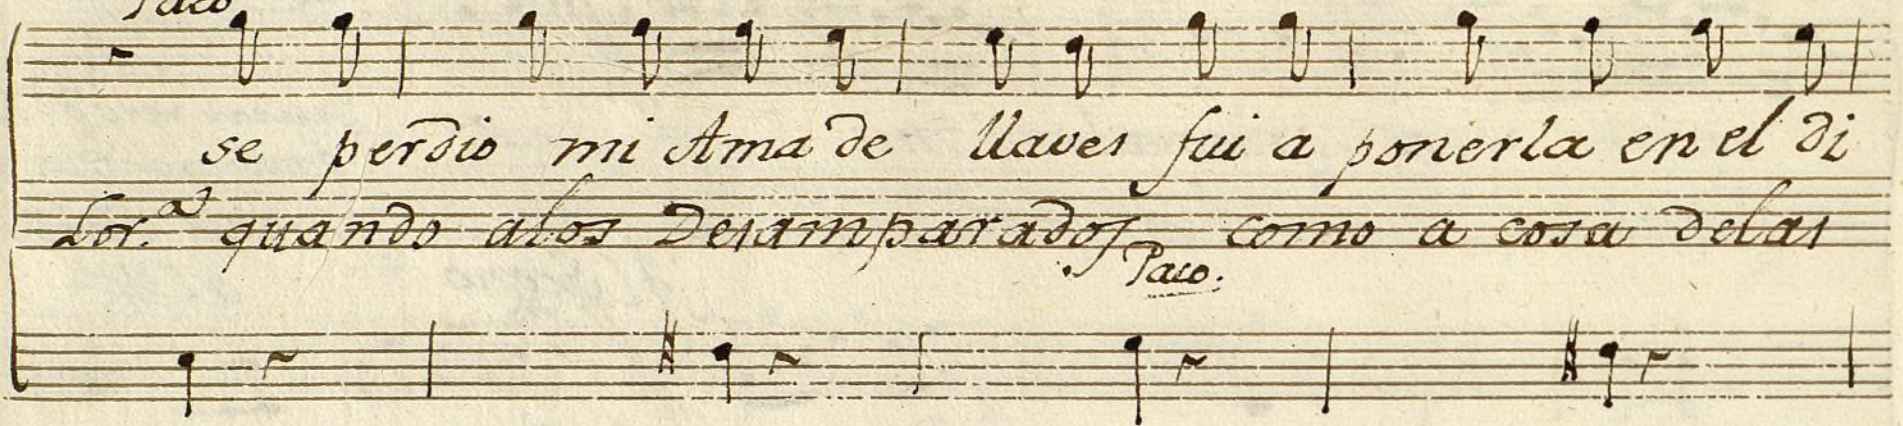 Paco
se perdio mi Ama de llaves fui a ponerla en el di
Lor.ª quando alos Desamparados como a cosa delas
Paco.